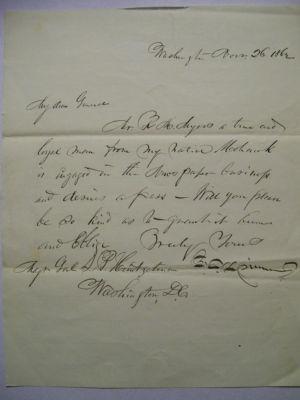 Washington Nov. 26 1862
My dear General
Mr. P. H. Myers a true and
loyal man from my native Mohawk
is engaged in the Newspaper business
and desires a pass — Will you please
be so kind as to grant it him
and Oblige Truly Yours
Majr Genl S. P. Heintzelman
Washington, D.C.